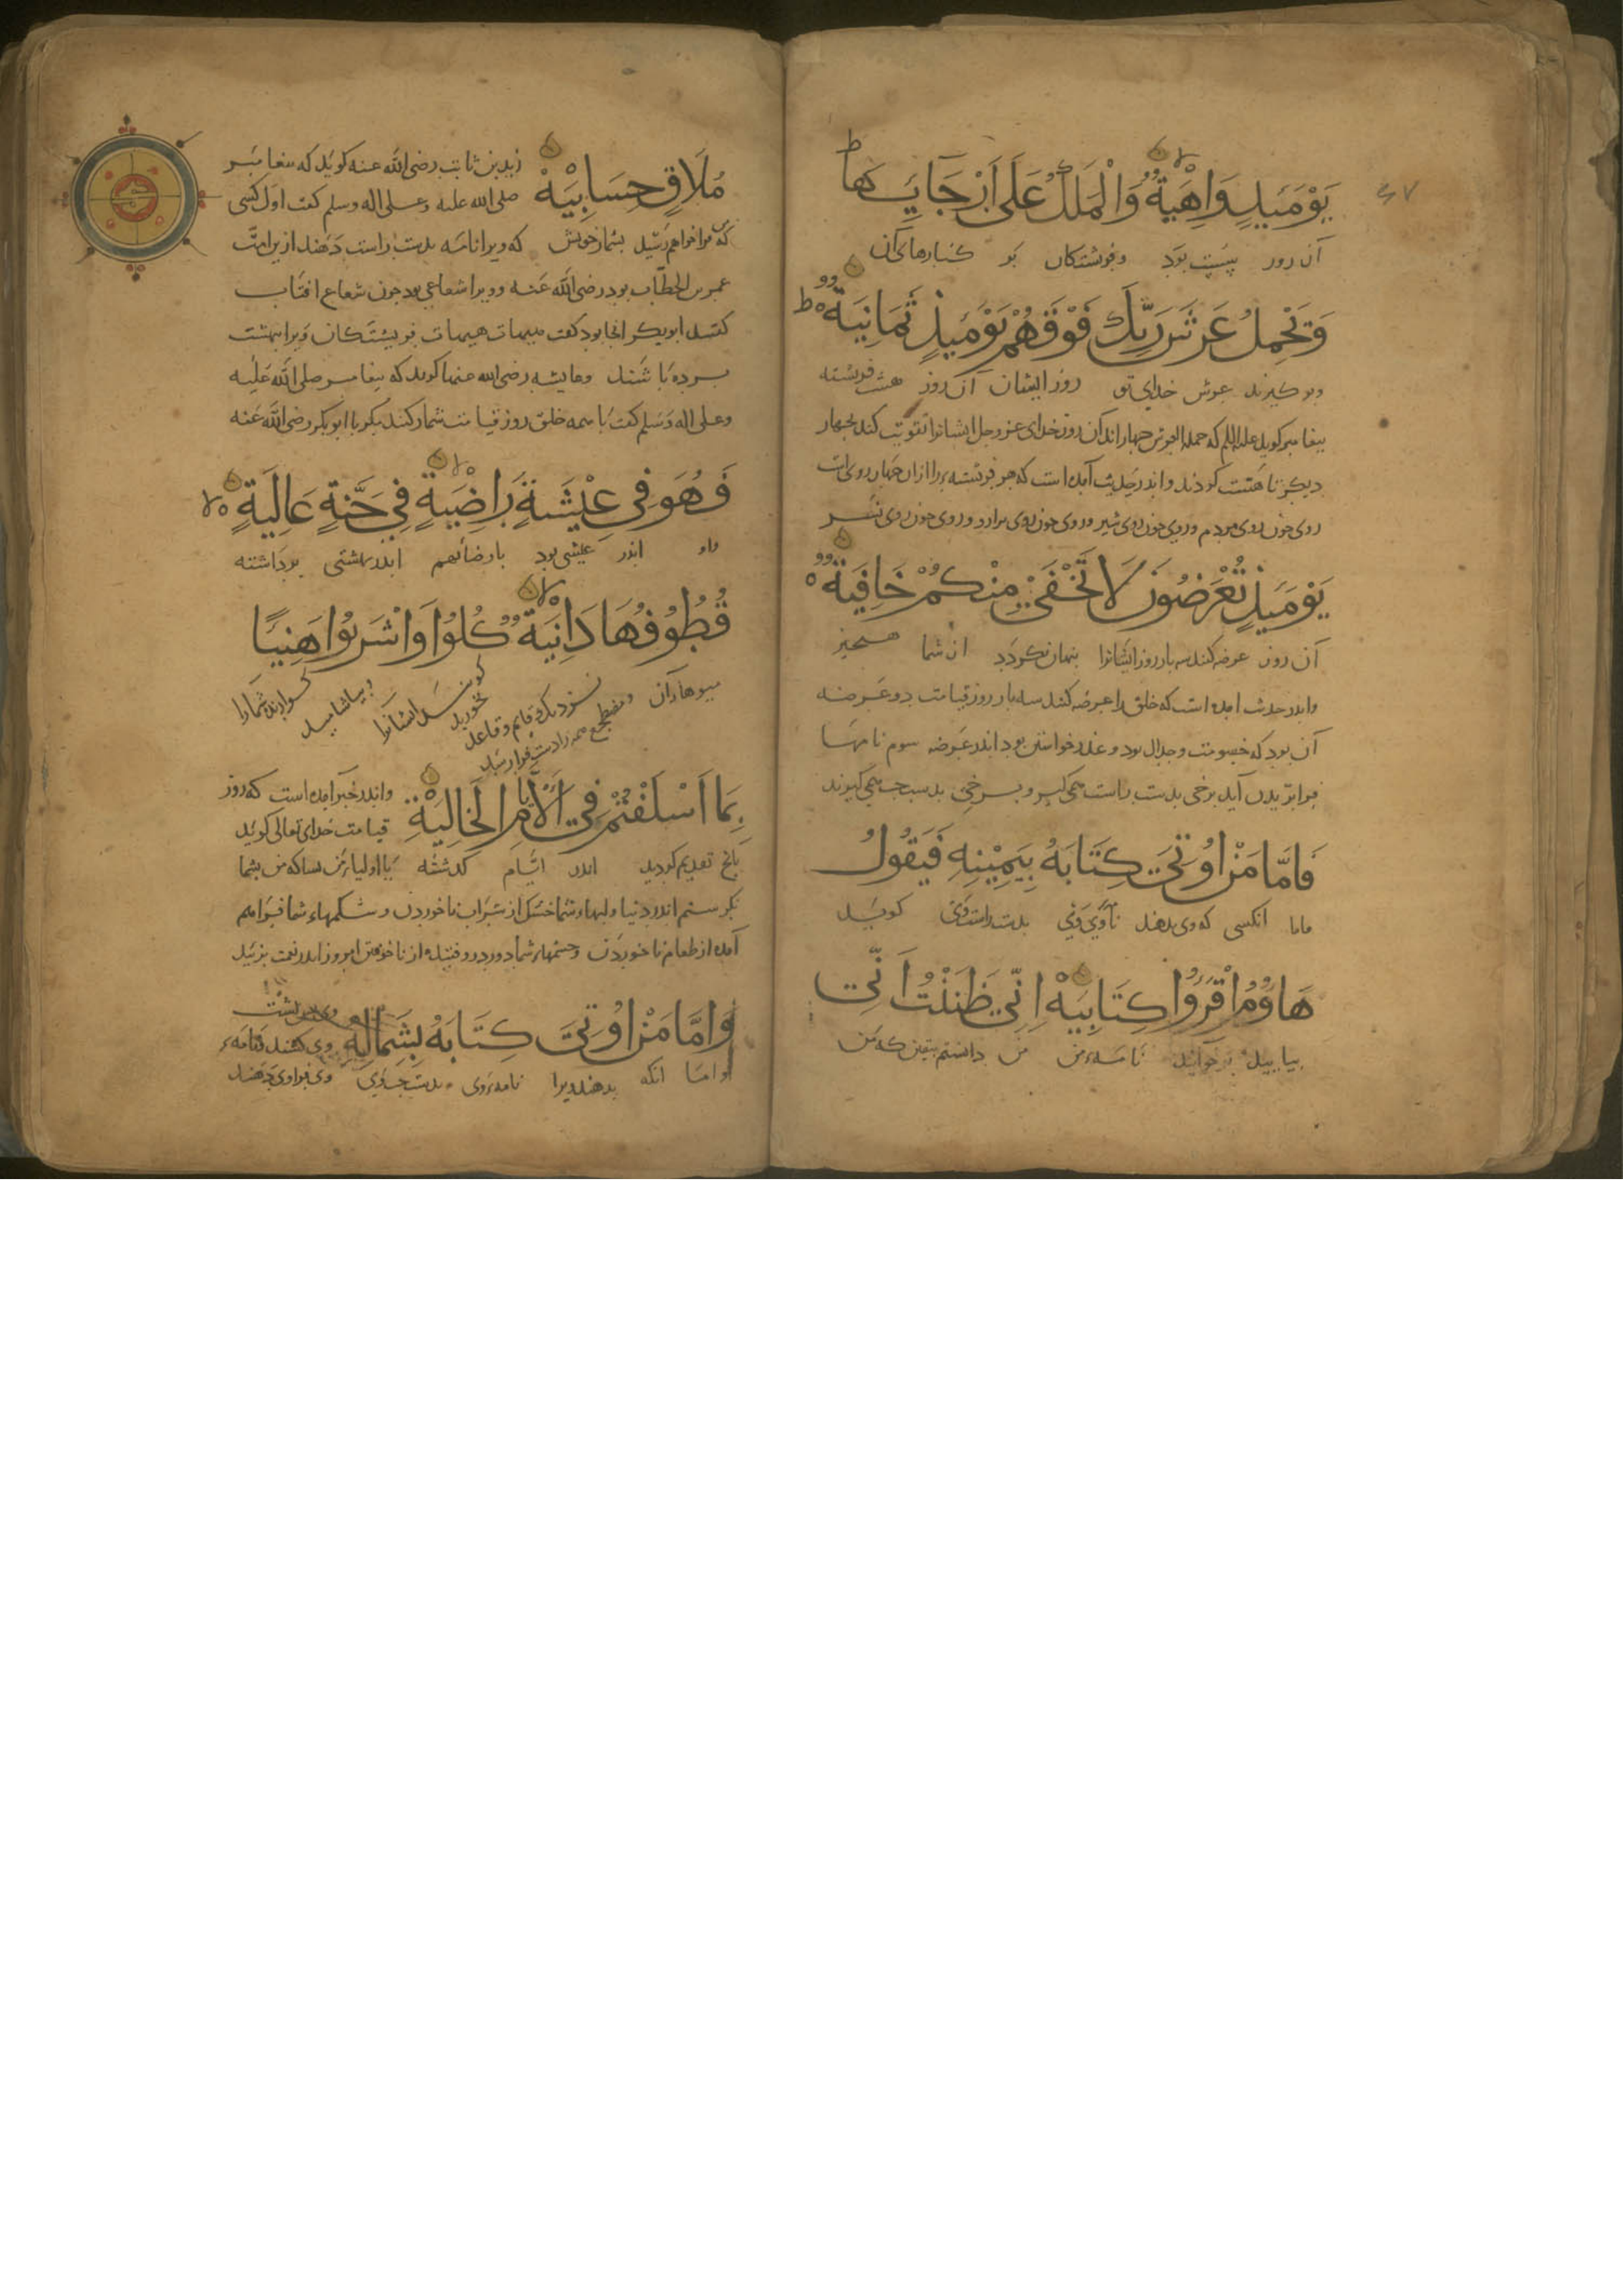 يَوْمَئِذٍ وَاهِيَةٌ وَالْمَلَكُ عَلَى أَرْجَائِهَا
آن روز سست بود و فرشتگان بر کنارهاء آن
وَيَحْمِلُ عَرْشَ رَبِّكَ فَوْقَهُمْ يَوْمَئِذٍ ثَمَانِيَةٌ
وبر گیرند عرش خدای تو زبر ایشان آن روز هشت فریشته
پیغامبر گوید علیه السلم که حملة العرش چهاراند آن روز خدای عزوجل ایشانرا تقویت کند بچهار
دیگر تا هشت گردند و اندر حدیث آمده است که هر فرشته را از ان چهار روی است
روی چون روی مردم و روی چون روی شیر و روی چون روی و روی چون روی نسر
يَوْمَئِذٍ تُعْرَضُونَ لَا تَخْفَى مِنْكُمْ خَافِيَةٌ
آن روز عرضه کنند سه بار روز ایشانرا پنهان نگردد از شما هیچیز
واندر حدیث امده است که خلق را عرضه کنند سه بار روز قیامت دو عرضه
آن بود که خصومت و جدال بود و عذر خواستن بود اندر عرضه سوم نامها
فرا پریدن آید برخی بدست راست همی گیرند و برخی بدست چپ همی گیرند
فَأَمَّا مَنْ أُوتِيَ كِتَابَهُ بِيَمِينِهِ فَيَقُولُ
فاما انکسی که وی بدهند نامه وی بدست راست وی گوید
هَاؤُمُ اقْرَءُوا كِتَابِيَهْ إِنِّي ظَنَنْتُ أَنِّي
بیایید بر خوانید نامه من من دانستم بیقین که من
مُلَاقٍ حِسَابِيَهْ زید بن ثابت رضی الله عنه گوید که پیغامبر
صلی الله علیه وعلی اله وسلم گفت اول کسی
که من فرا خواهم رسید بشمار خویش که ویرا نامه بدست راست دهند از این امت
عمر بن الخطاب بود رضی الله عنه و ویرا شعاعی بود چون شعاع افتاب
گفتند ابوبکر کجا بود گفت هیهات هیهات فریشتگان ویرا ببهشت
برده باشند وعایشه رضی الله عنها گوید که پیغامبر صلی الله علیه
وعلی اله وسلم گفت با همه خلق روز قیامت شمار کنند مگر با ابوبکر رضی الله عنه
فَهُوَ فِي عِيشَةٍ رَاضِيَةٍ فِي جَنَّةٍ عَالِيَةٍ
واو اندر عیشی بود با رضا بهم اندر بهشتی برداشته
قُطُوفُهَا دَانِيَةٌ كُلُوا وَاشْرَبُوا هَنِيئًا
میوهاء آن نزدیک قایم وقاعد ومضطجع همه را دست فرا رسد گویند ایشانرا بخورید وبیاشامید گوارنده شمارا
بِمَا أَسْلَفْتُمْ فِي الْأَيَّامِ الْخَالِيَةِ واندر خبر آمده است که روز
قیامت خدای تعالی گوید
بانچ تقدیم کردید اندر ایام گذشته یا اولیاء من بسا که من بشما
نگرستم اندر دنیا ولبهاء شما خشک از شراب ناخوردن وشکمهاء شما فراهم
آمده از طعام ناخوردن وچشمهاء شما دور در رفته از ناخفتن امروز اندر نعمت بزیید
وَأَمَّا مَنْ أُوتِيَ كِتَابَهُ بِشِمَالِهِ
واما انکه بدهند ویرا نامه وی بدست چپ وی